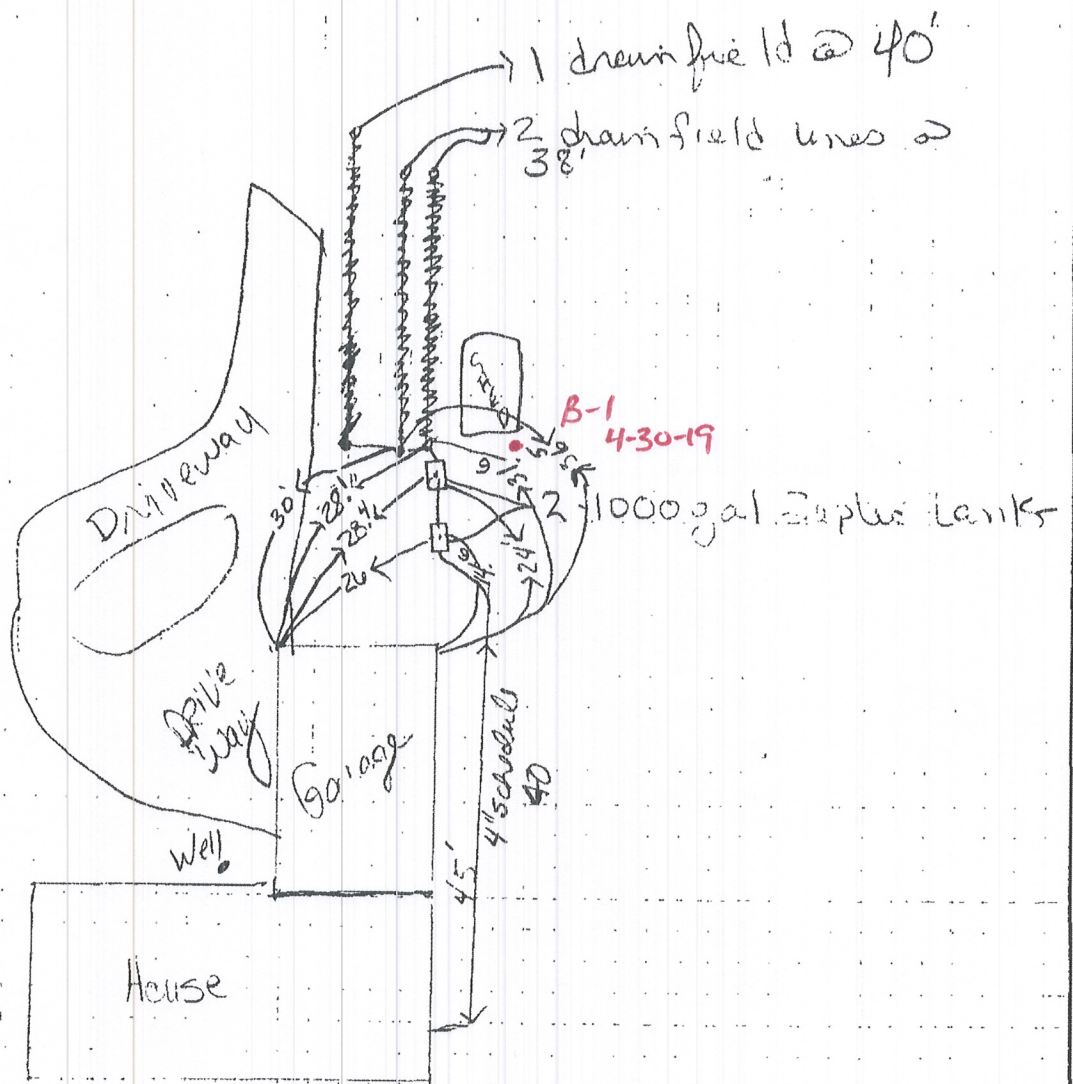 1 drainfield @ 40'
2 drainfield lines @
38'
Shed
B-1
4-30-19
Driveway
30'
28'
28'
26
9
24
14
2 1000 gal Septic tanks
Drive
Way
Garage
4" schedule
40
45'
Well
House